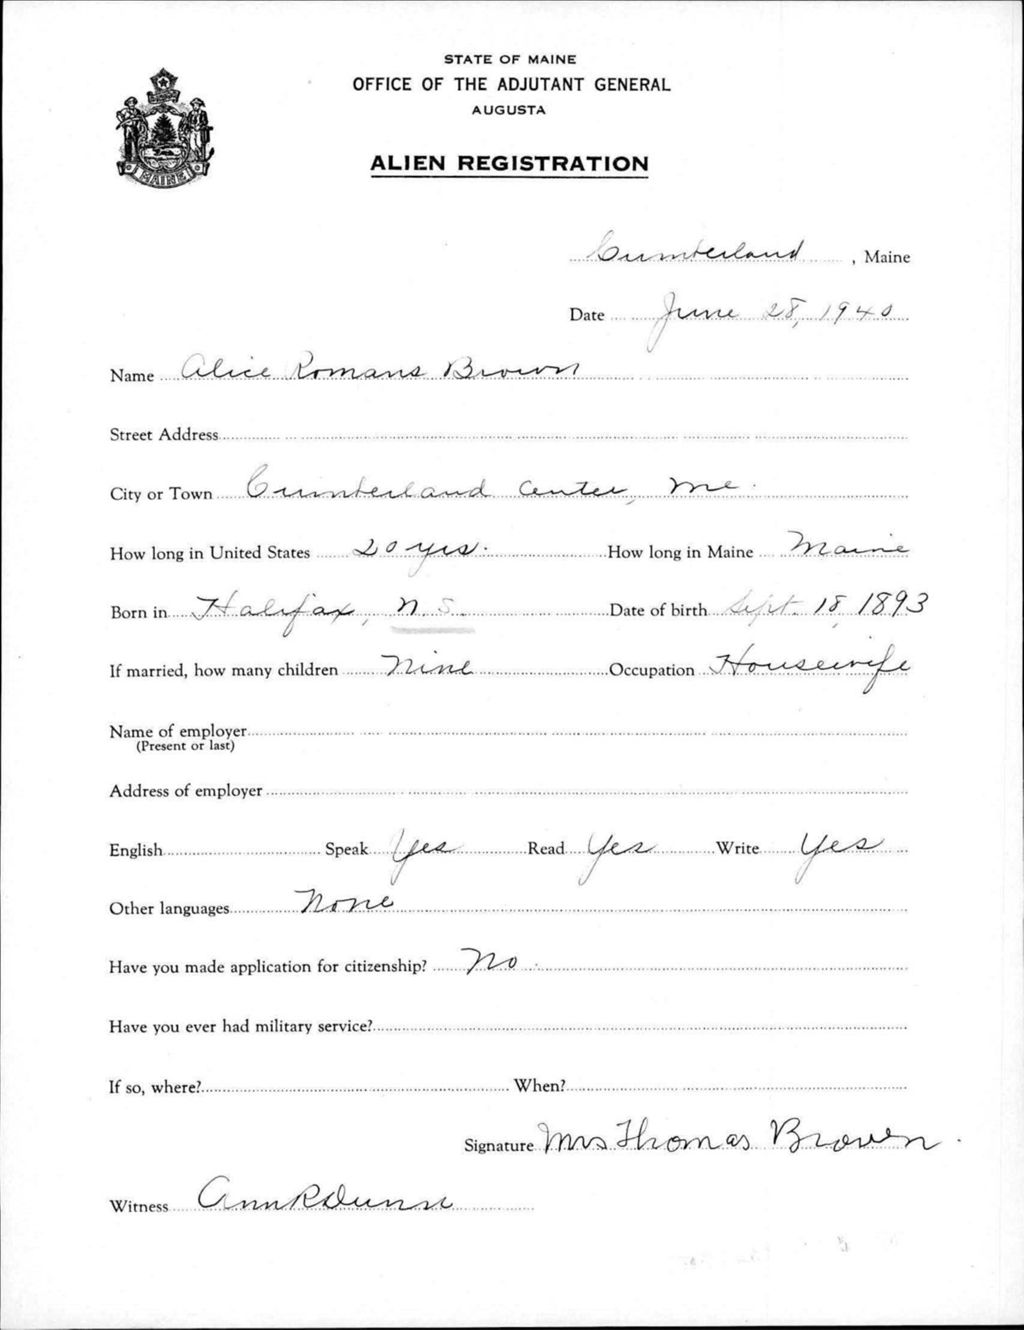 STATE OF MAINE
OFFICE OF THE ADJUTANT GENERAL
AUGUSTA
ALIEN REGISTRATION
MAINE
Cumberland, Maine
Date June 28, 1940
Name Alice Romans Brown
Street Address
City or Town Cumberland Center, Me.
How long in United States 20 yrs. How long in Maine Maine
Born in Halifax, N.S. Date of birth Sept. 18, 1893
If married, how many children Nine Occupation Housewife
Name of employer
(Present or last)
Address of employer
English Speak Yes Read Yes Write Yes
Other languages None
Have you made application for citizenship? No
Have you ever had military service?
If so, where? When?
Signature Mrs Thomas Brown.
Witness Ann R Dunn